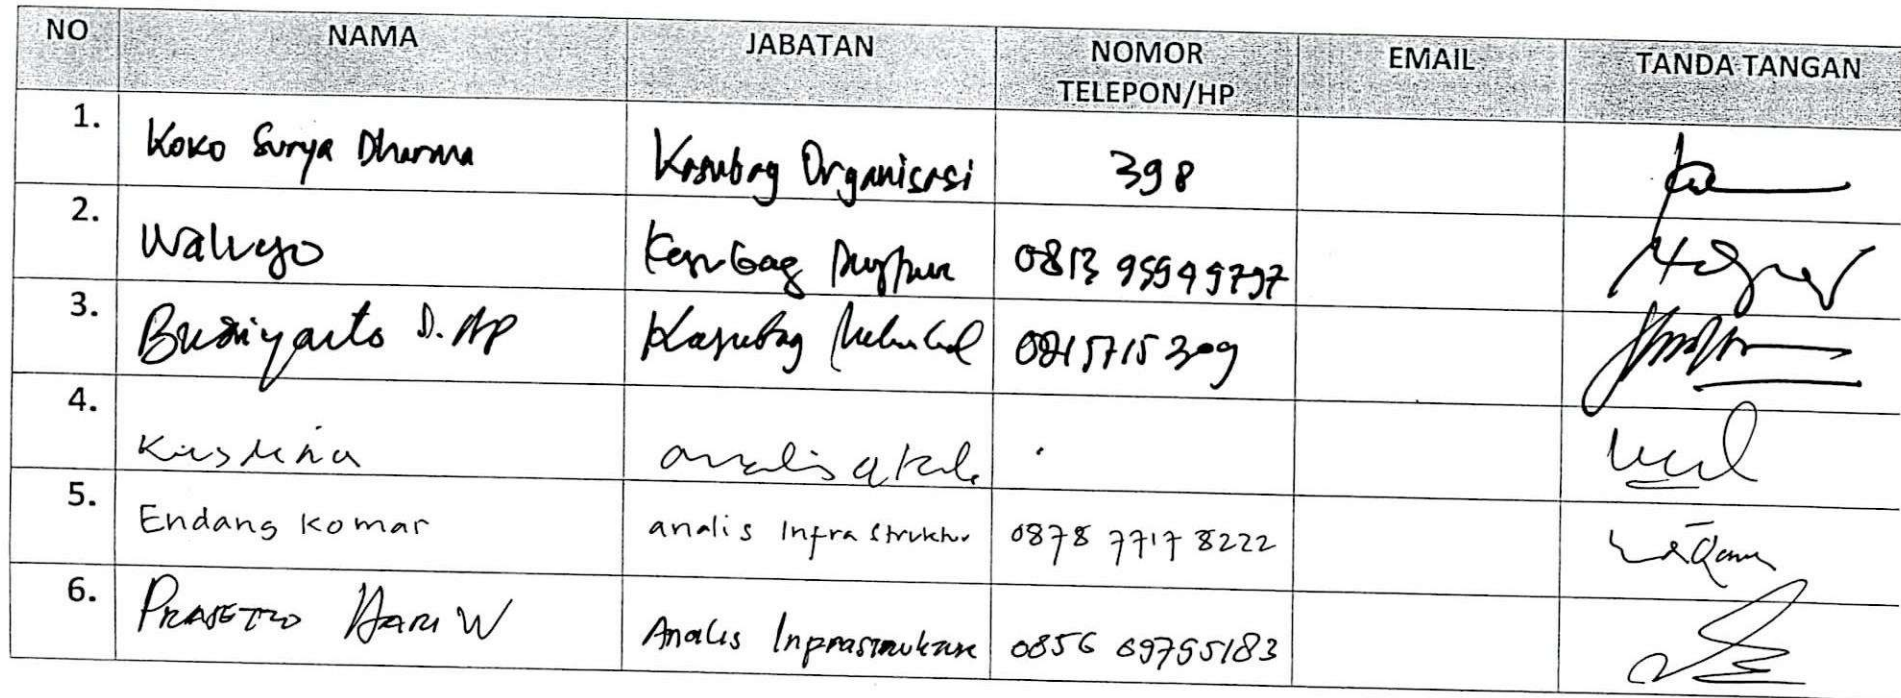 NO NAMA JABATAN NOMOR TELEPON/HP EMAIL TANDA TANGAN
1. Koko Surya Dharma Kasubag Organisasi 398
2. Waluyo Kasubag 0813 95949797
3. Budiyanto D. AP Kasubag 0815715309
4. Kustina analis
5. Endang Komar analis Infrastruktur 0878 7717 8222
6. PRASETYO HARI W Analis Inprastruktur 0856 69755183